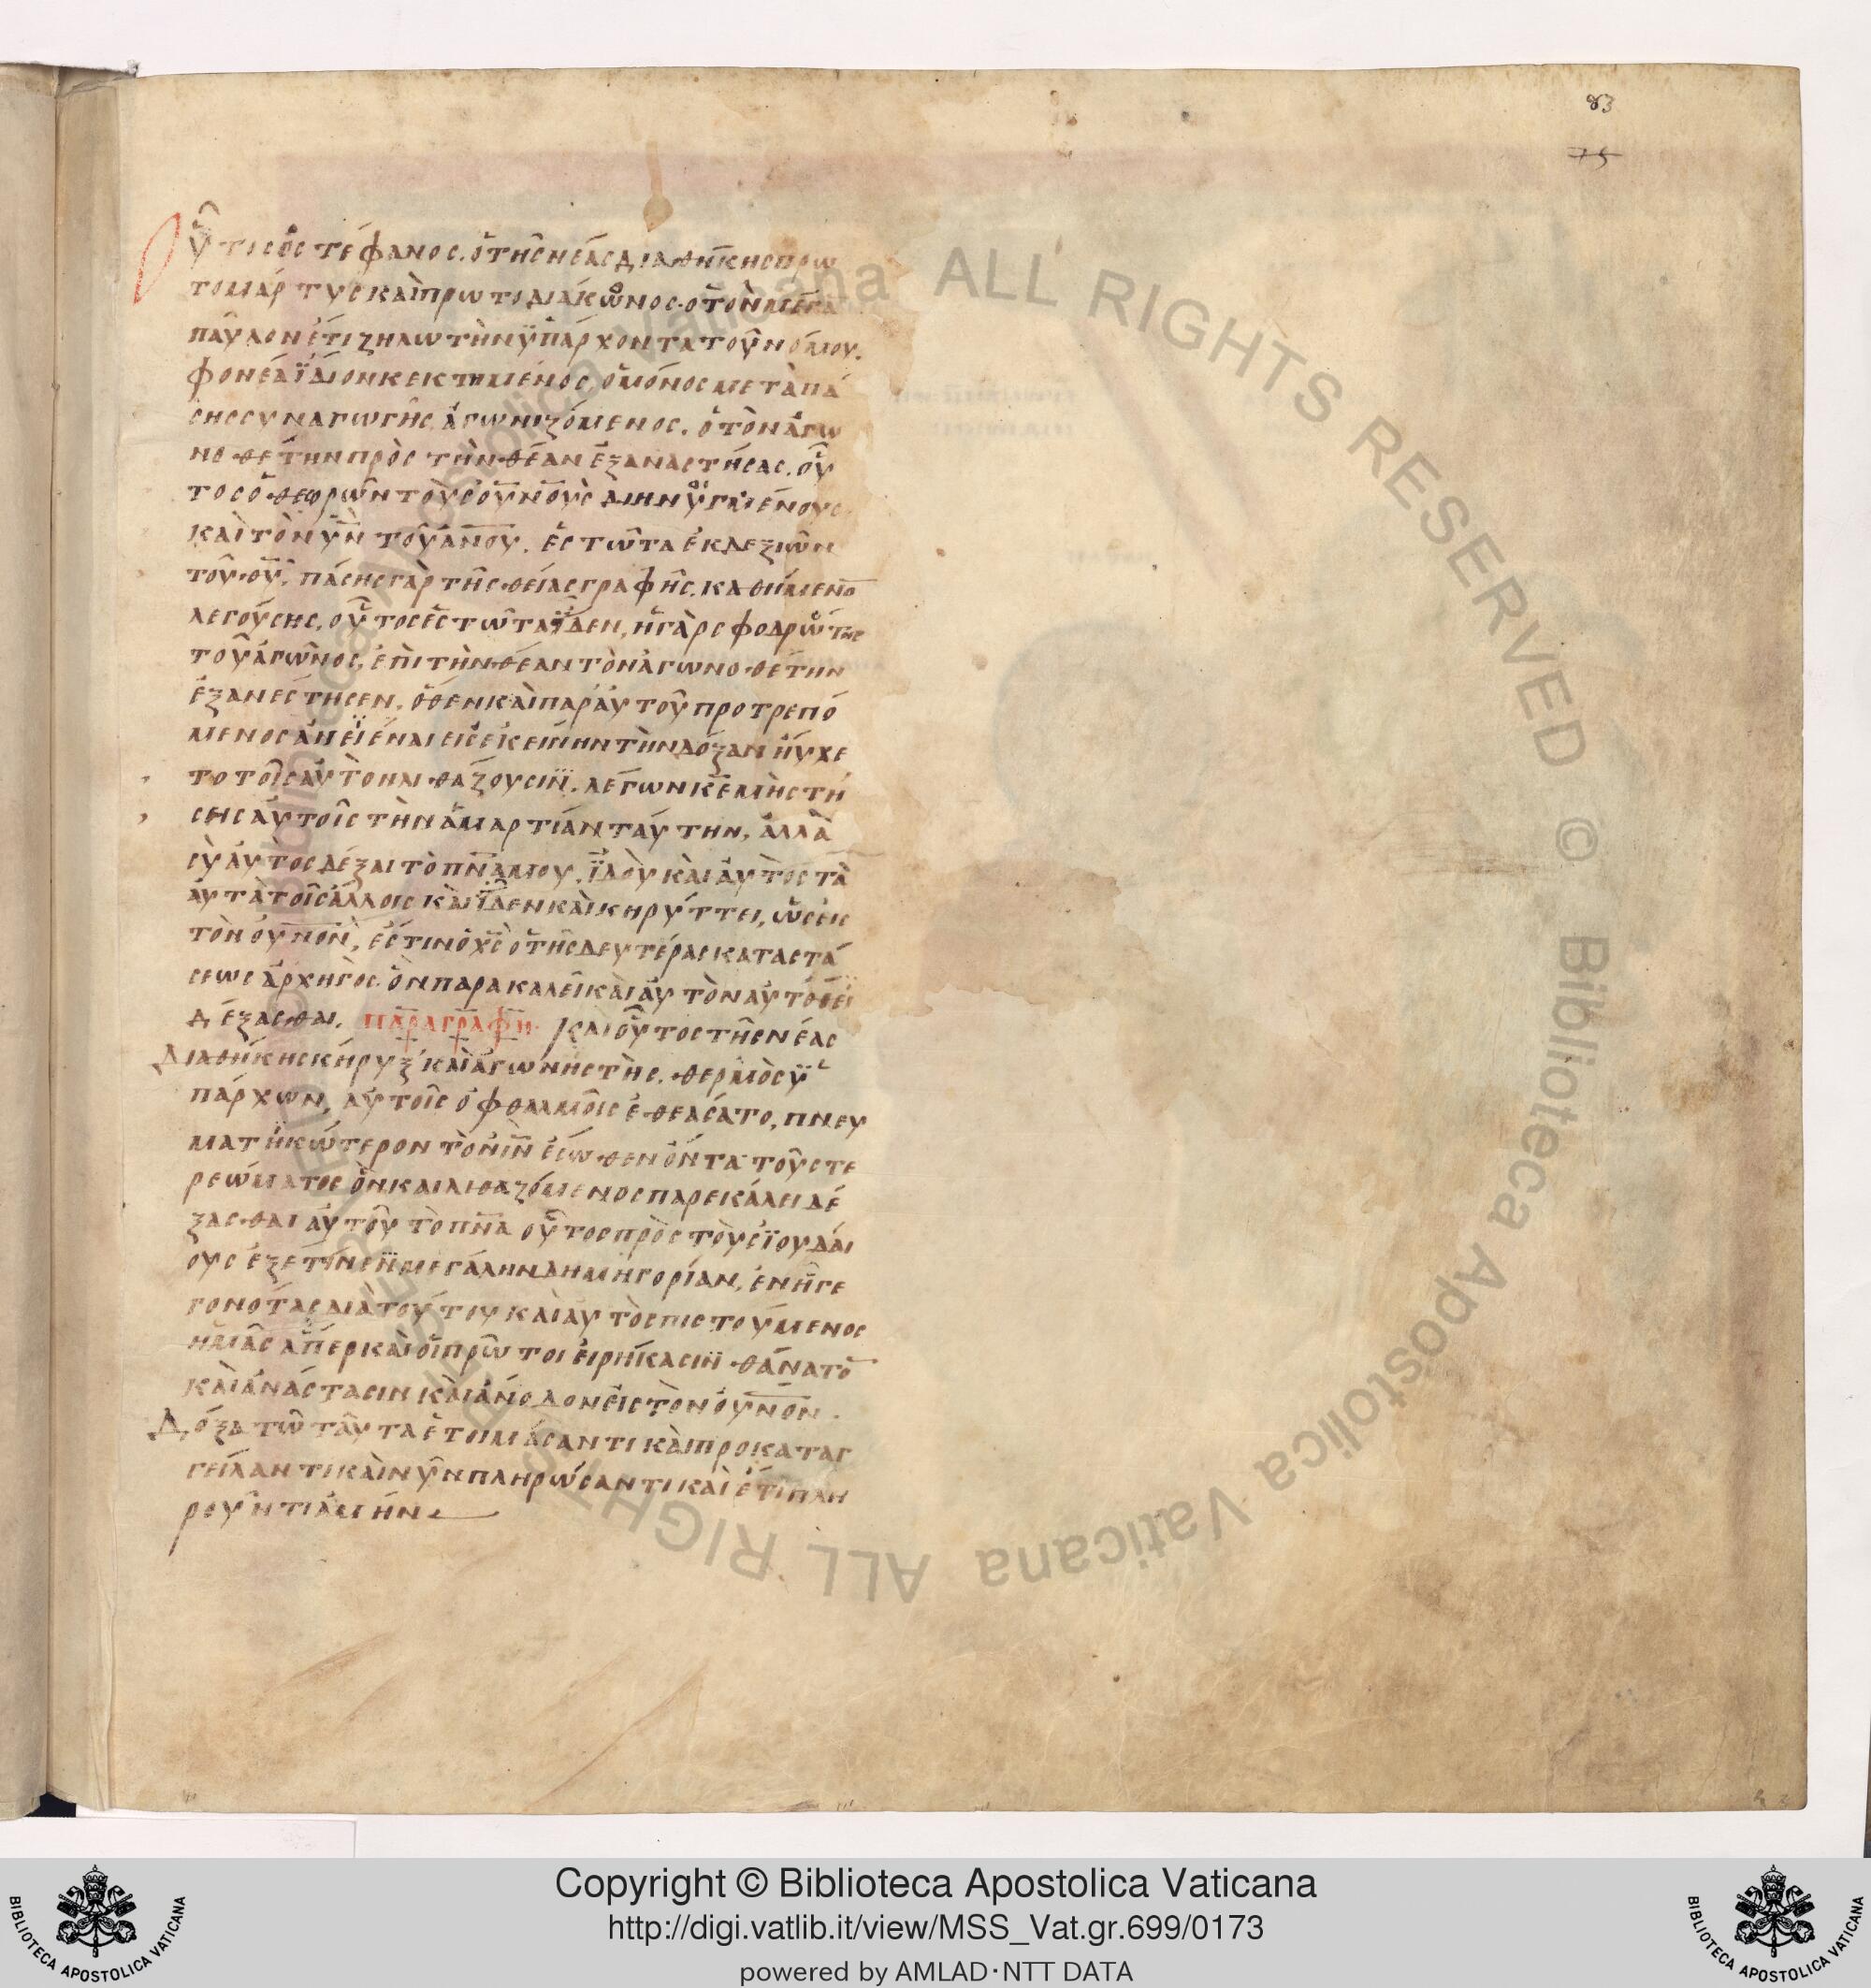 83
75
Οὗτος ὁ Στέφανος. ὁ τῆς νέας διαθήκης πρω
τομάρτυς καὶ πρωτοδιάκωνος. ὁ τὸν μέγα
παῦλον ἔτι ζηλωτὴν ὑπάρχοντα τοῦ νόμου.
φονέα ἴδιον κεκτημένος, ὁ μόνος μετὰ πά
σης συναγωγῆς ἀγωνιζόμενος. ὁ τὸν ἀγω
νοθέτην πρὸς τὴν θέαν ἐξαναστήσας. οὗ
τος ὁ θεωρῶν τοὺς οὐνοὺς διηνυγμένους
καὶ τὸν υν τοῦ ανου. ἑστῶτα ἐκ δεξιῶν
τοῦ θυ. πάσης γὰρ τῆς θείας γραφῆς. καθήμενο
λεγούσης, οὗτος ἑστῶτα ἴδεν, ἡ γὰρ σφοδρώτης
τοῦ ἀγῶνος, ἐπὶ τὴν θέαν τὸν ἀγωνοθέτην
ἐξανέστησεν. ὅθεν καὶ παρ' αὐτοῦ προτρεπό
μενος ἀνεϊέναι εἰς ἐκείνην τὴν δόξαν ηὔχε
το τοῖς αὐτὸν λιθάζουσιν. λέγων κε μὴ στή
σης αὐτοῖς τὴν ἁμαρτίαν ταύτην, ἀλλὰ
σὺ αὐτὸς δέξαι τὸ πνα μου. ἰδοὺ καὶ αὐτὸς τὰ
αὐτὰ τοῖς ἄλλοις καὶ ἴδεν καὶ κηρύττει, ὡς εἰς
τὸν ουνον, ἐστιν ὁ χς ὁ τῆς δευτέρας καταστά
σεως ἀρχηγὸς ὃν παρακαλεῖ καὶ αὐτὸν αὐτόθει
δέξασθαι. ΠΑΡΑΓΡΑΦΗ Καὶ οὗτος τῆς νέας
Διαθήκης κήρυξ καὶ ἀγωνηστὴς. θερμὸς ὑ
πάρχων, αὐτοῖς ὀφθαλμοῖς ἐθεάσατο, πνευ
ματηκώτερον τὸν ιν ἔσωθεν ὄντα τοῦ στε
ρεώματος ὃν καὶ λιθαζόμενος παρεκάλει δέ
ξασθαι αὐτοῦ τὸ πνα οὗτος πρὸς τοὺς ἰουδαί
ους ἐξέτινεν μεγάλην δημηγορίαν, ἐν ἧ γε
γονότας διὰ τούτου καὶ αὐτὸς πιστούμενος
ἡμᾶς ἅπερ καὶ οἱ πρῶτοι εἰρήκασιν θάνατο
καὶ ἀνάστασιν καὶ ἄνοδον εἰς τὸν ουνον.
Δόξα τῶ ταῦτα ἑτοιμάσαντι καὶ προκαταγ
γείλαντι καὶ νῦν πληρώσαντι καὶ ἔτι πλη
ροῦντι ἀμήν
ALL RIGHTS RESERVED © Biblioteca Apostolica Vaticana
Copyright © Biblioteca Apostolica Vaticana
http://digi.vatlib.it/view/MSS_Vat.gr.699/0173
powered by AMLAD·NTT DATA
BIBLIOTECA APOSTOLICA VATICANA
BIBLIOTECA APOSTOLICA VATICANA